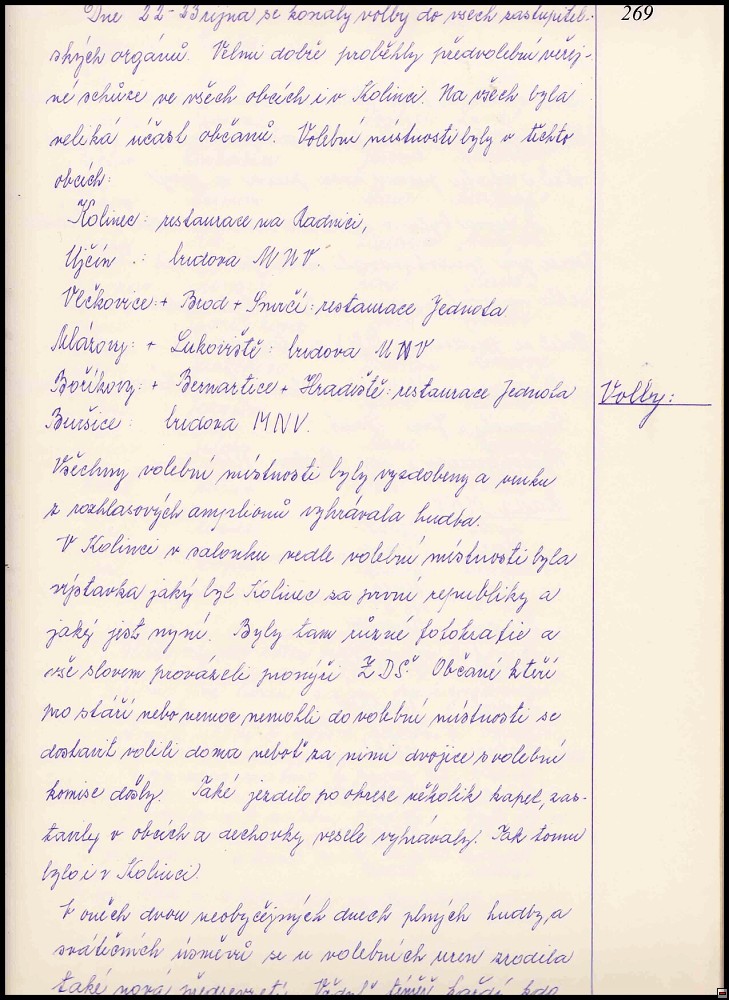 269
Dne 22-23 října se konaly volby do všech zastupitel-
ských orgánů. Velmi dobře proběhly předvolební veřej-
né schůze ve všech obcích i v Kolinci. Na všech byla
veliká účast občanů. Volební místnosti byly v těchto
obcích:
Kolinec: restaurace na Radnici,
Ujčín .: budova MNV.
Vlčkovice: + Brod + Smrčí: restaurace Jednota
Mlázovy: + Lukoviště: budova MNV
Boříkovy: + Bernartice + Hradiště: restaurace Jednota
Volby:
Buršice: budova MNV.
Všechny volební místnosti byly vyzdobeny a venku
z rozhlasových amplionů vyhrávala hudba.
V Kolinci v salonku vedle volební místnosti byla
výstavka jaký byl Kolinec za první republiky a
jaký jest nyní. Byly tam různé fotokrafie a
vše slovem provázeli pionýři ZDŠ. Občané kteří
pro stáří nebo nemoc nemohli do volební místnosti se
dostavit volili doma neboť za nimi dvojice s volební
komise došly. Také jezdilo po okrese několik kapel, zas-
tavily v obcích a dechovky vesele vyhrávaly. Tak tomu
bylo i v Kolinci.
V oněch dvou neobyčejných dnech plných hudby, a
svátečních úsměvů se u volebních uren zrodila
také nová předsevzetí. Vždyť téměř každý kdo